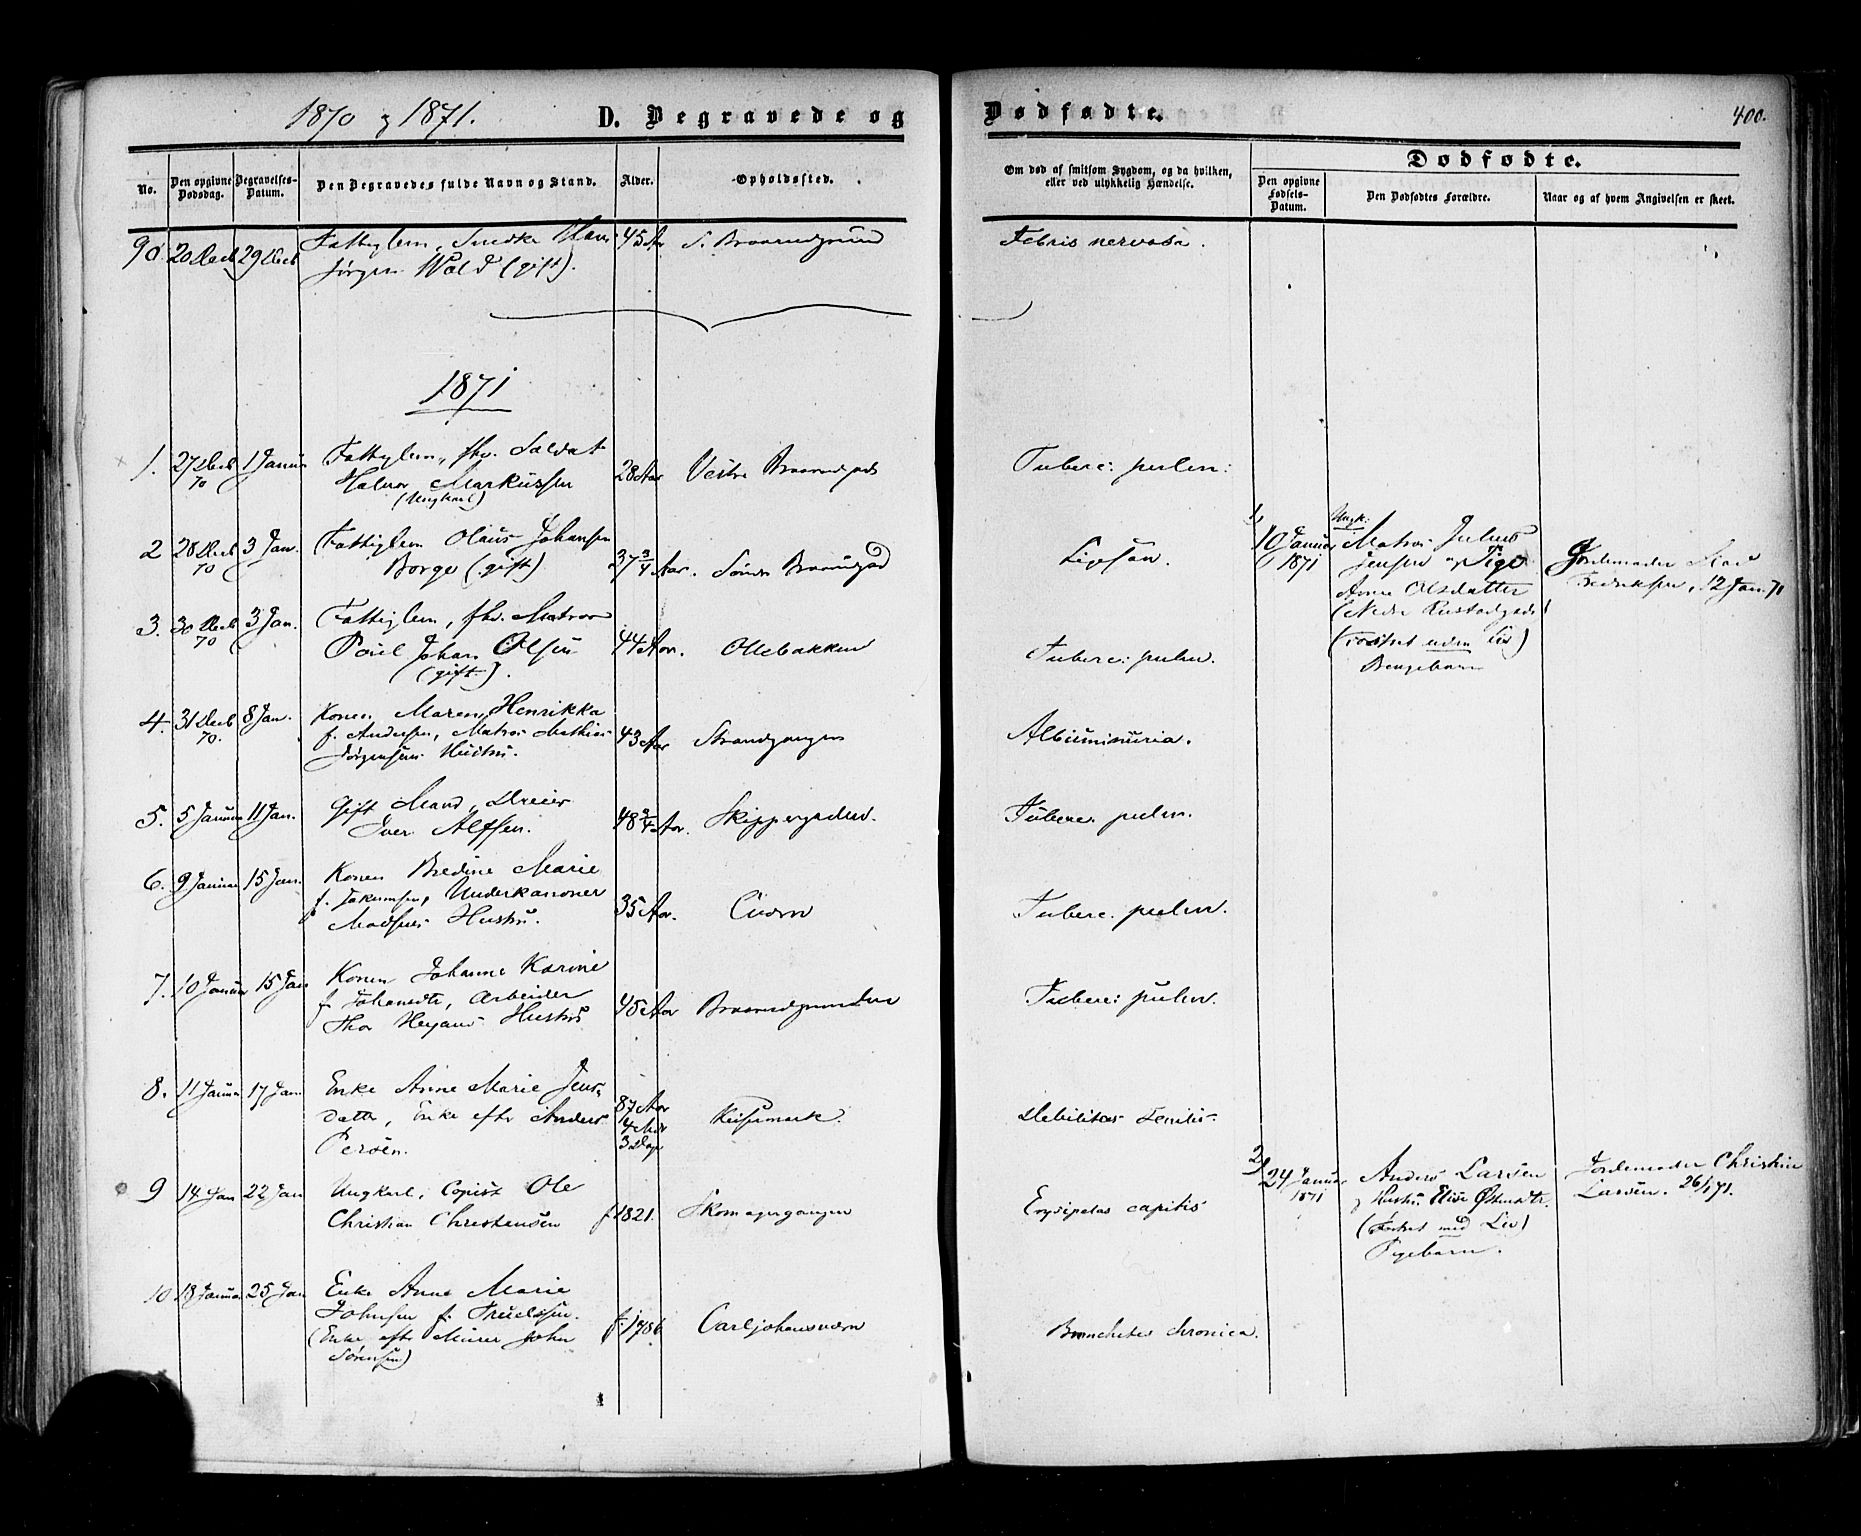 1870 & 1871.
D. Begravede og
Dødfødte.
400.
No.
Den opgivne Dødsdag.
Begravelses-Datum.
Den Begravedes fulde Navn og Stand.
Alder.
Opholdssted.
Om død af smitsom Sygdom, og da hvilken,
eller ved ulykkelig Hændelse.
Dødfødte.
Den opgivne Fødsels-Datum.
Den Dødfødtes Forældre.
Naar og af hvem Angivelsen er skeet.
90 20 Decb 29 Decb Fattiglem, Snedker Hans 45 Aar
Jørgen Wold (gift).
Febris nervosa.
1871
1. 27 Decb 70 1 Januar Fattiglem, fhv. Soldat
Halvor Markussen 28 Aar Vestre
(Ungkarl)
Tuberc: pulm:
2 28 Decb 70 3 Jan. Fattiglem Olaus Johansen
Borge (gift) 37 3/4 Aar.
Ligesaa.
3. 30 Decb 70 3 Jan. Fattiglem, fhv. Matros
Paul Johan Olsen 44 Aar. Ollebakken
(gift).
Tuberc: pulm.
4. 31 Decb 70. 8 Jan. Konen Maren Henrikka
f. Andersen, Matros Mathias 43 Aar Strandgangen
Jørgensens Hustru.
Albuminuria.
5. 5 Januar 11 Jan. Gift Mand, Dreier
Iver Alfsen. 48 3/4 Aar. Skippergaden.
Tuberc. pulm.
6. 9 Januar 15 Jan. Konen Bredine Marie
f. Jakumsen, Underkanoner 35 Aar.
Madsens Hustru.
Tuberc. pulm.
7. 10 Januar 15 Jan Konen Johanne Karine
f. Johansdtr, Arbeider 45 Aar Braarudgrunden
Thor Hustru
Tuberc: pulm.
8. 11 Januar 17 Jan Enke Anne Marie Jens-
datter, Enke efter Anders 87 Aar 4 Mdr 3 Dage Keisemark.
Persen.
Debilitas senilis.
9 14 Jan 22 Jan Ungkarl, Copist Ole
Christian Christensen f. 1821. Skomagergangen
Erysipelas capitis
10 18 Januar 25 Jan Enke Anne Marie
Johnsen f. Truelssen. f. 1786 Carljohansværn
(Enke efter Murer John
Sørensen)
Bronchites chronica.
1, 10 Januar 1871
Ungk:
Matros Julius
Jensen og Pige
Anne Olsdatter
(Nedre
(Fostret uden Liv)
Drengebarn
Jordemoder
Fredriksen, 12 Jan. 71
2, 24 Januar 1871
Anders Larsen
& Hustru Elise
(Fostret med Liv)
Pigebarn.
Jordemoder Christine
Larsen. 26/1 71.